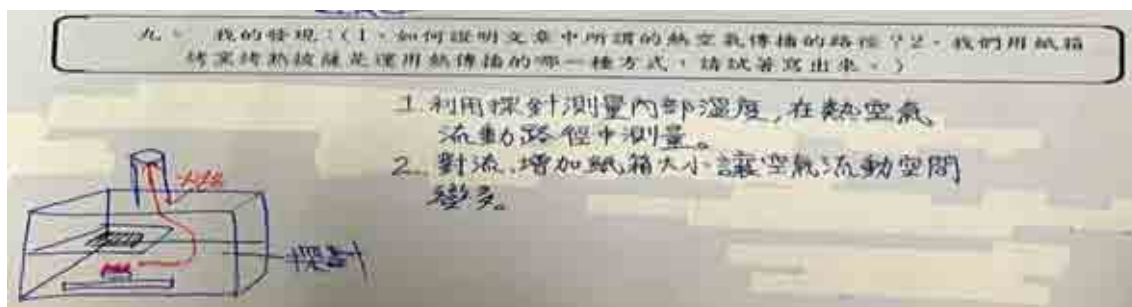 九、 我的發現:(1、如何證明文章中所謂的熱空氣傳播的路徑?2、我們用紙箱
烤窯烤熟披薩是運用熱傳播的哪一種方式,請試著寫出來。)
1.利用探針測量內部溫度,在熱空氣
流動路徑中測量。
2.對流.增加紙箱大小讓空氣流動空間
變多。
探針